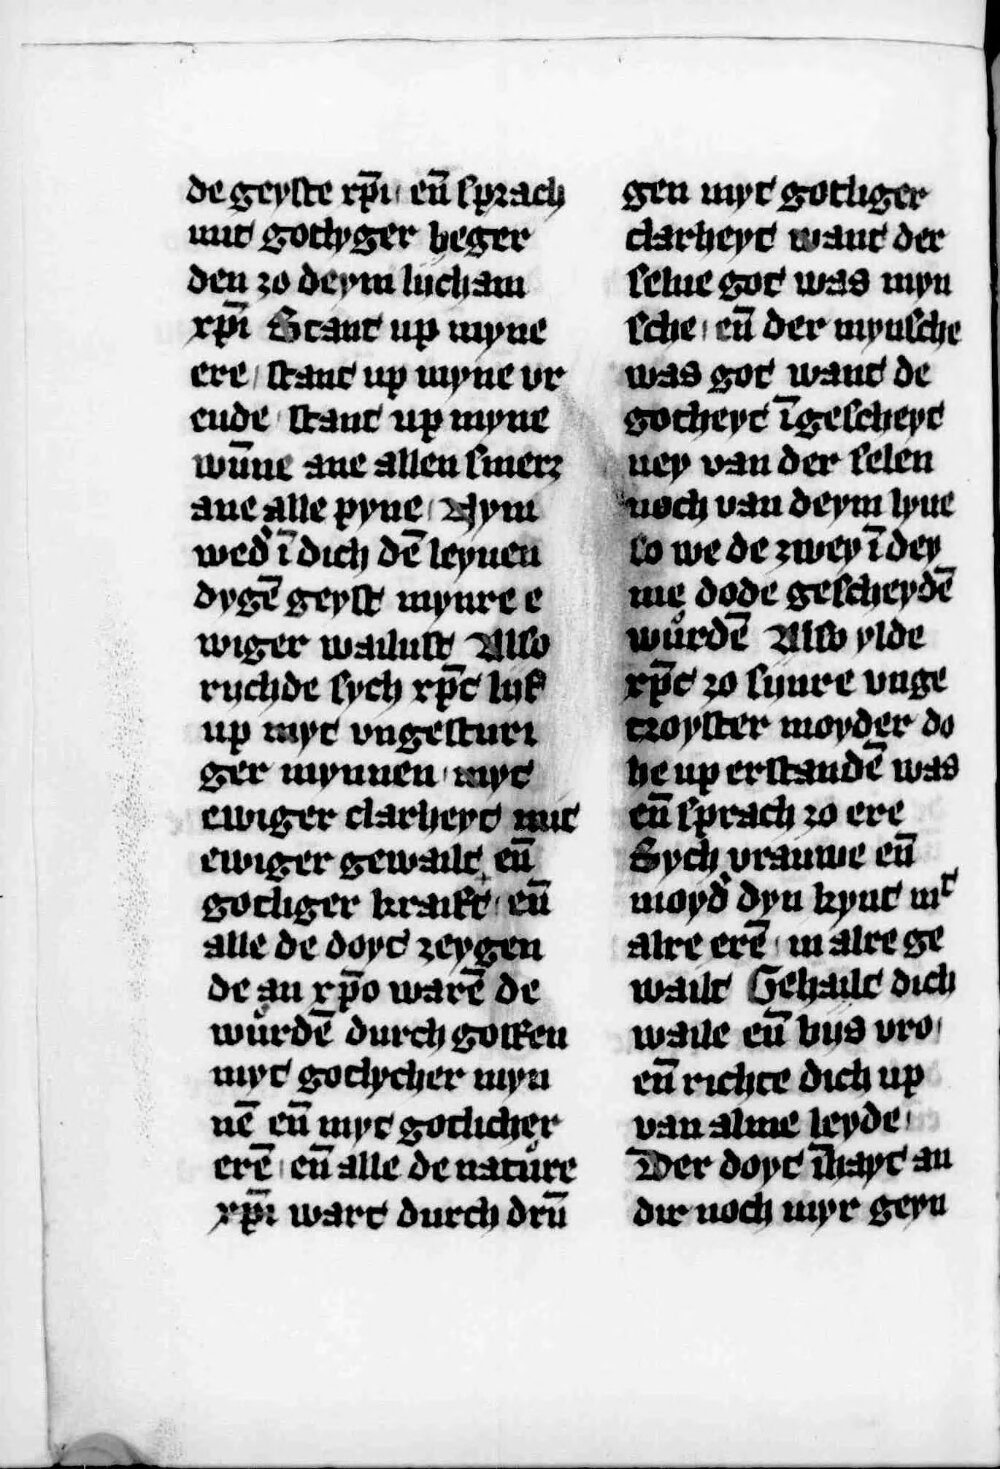 de geyste xp̄i en̄ sprach
mit gotlyger beger
den zo deym licham
xp̄i Stant up myne
ere stant up myne vr
eude stant up myne
wūne ane allen smerz
ane alle pyne Nym
wed' ī dich dē leynen
dygē geyst mynre e
wiger wailust Also
richde sych xp̄c lyf
up myt vngesturi
ger mynnen myt
ewiger clarheyt mit
ewiger gewailt en̄
gotliger kraift en̄
alle de doyt zeygen
de an xp̄o warē de
wůrdē durch gossen
myt gotlycher myn
nē en̄ myt gotlicher
erē en̄ alle de natůre
xp̄i wart durch drū
gen myt gotliger
clarheyt want der
selue got was myn
sche en̄ der mynsche
was got want de
gotheyt īgescheyt
ney van der selen
noch van deym lyue
so we de zwey ī dey
me dode gescheydē
wůrdē Also ylde
xp̄c zo synre vnge
troyster moyder do
he up erstandē was
en̄ sprach zo ere
Sych vrauwe en̄
moyd' dyn kynt mᵗ
alre erē in alre ge
wailt Gehailt dich
waile en̄ bys vro
en̄ richte dich up
van alme leyde
Der doyt īhayt an
dir noch myr geyn